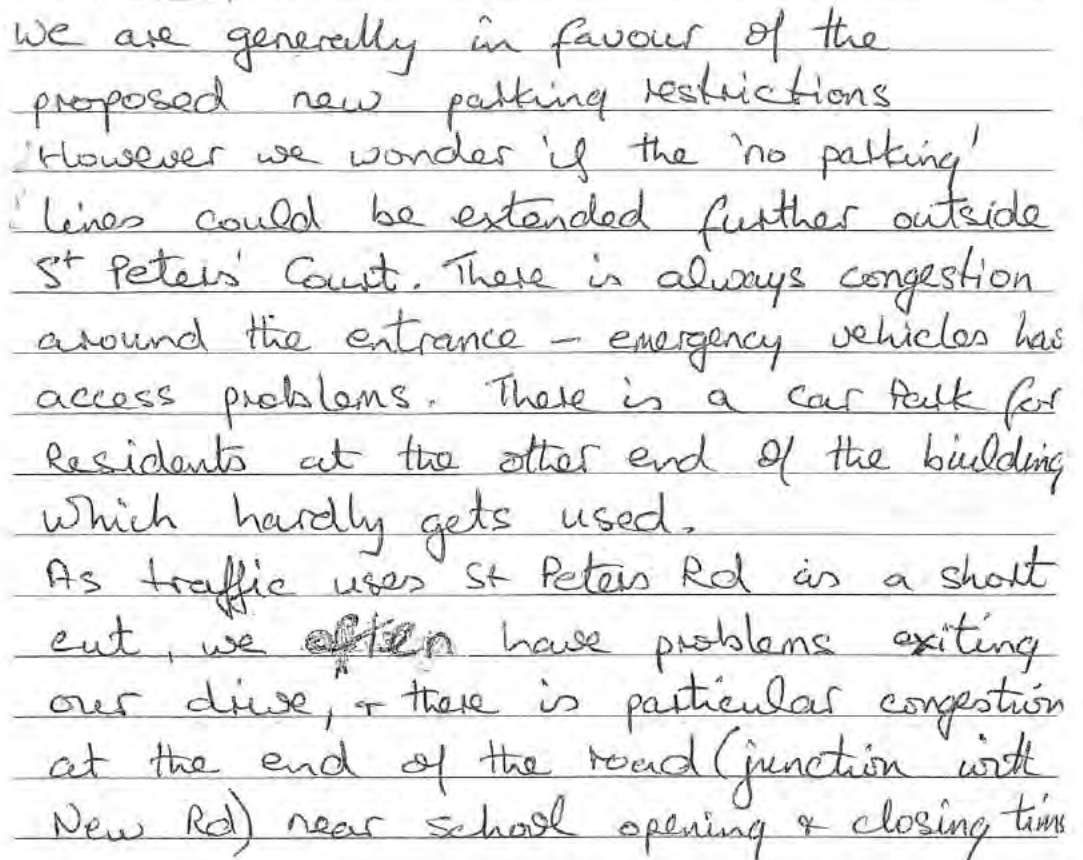 We are generally in favour of the
proposed new parking restrictions
However we wonder if the 'no parking'
lines could be extended further outside
St Peters' Court. There is always congestion
around the entrance – emergency vehicles has
access problems. There is a car Park for
Residents at the other end of the building
which hardly gets used.
As traffic uses St Peters Rd as a short
cut, we often have problems exiting
our drive, + there is particular congestion
at the end of the road (junction with
New Rd) near school opening & closing times